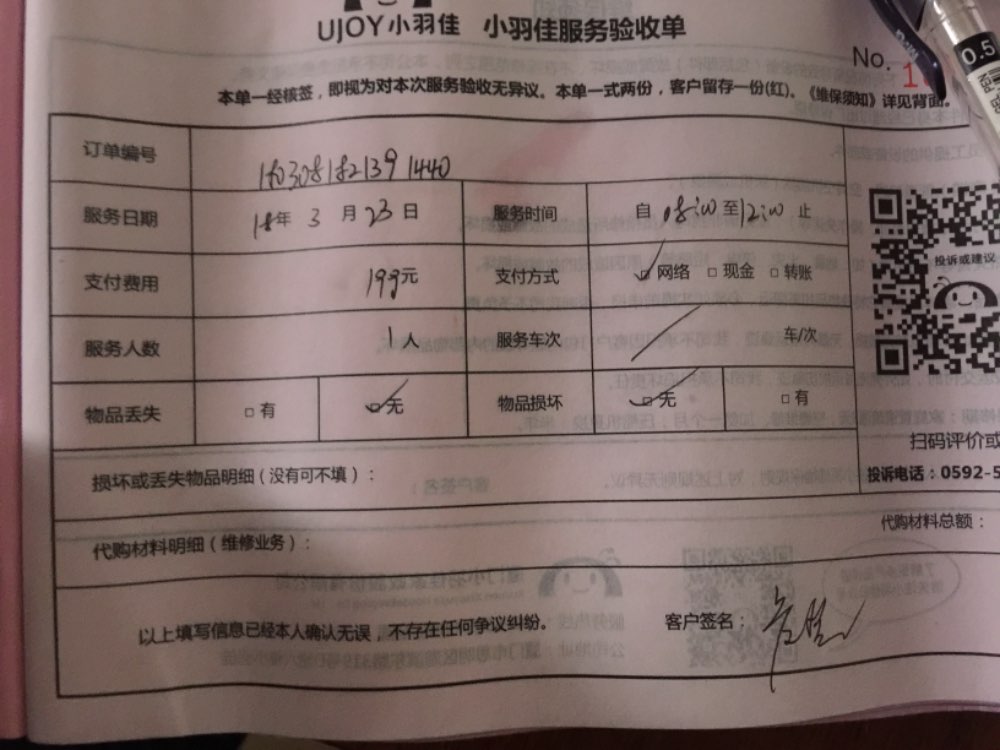 UJOY小羽佳 小羽佳服务验收单
No. 1
本单一经核签，即视为对本次服务验收无异议。本单一式两份，客户留存一份(红)。《维保须知》详见背面。
订单编号
服务日期 18年 3 月 23 日 服务时间 自 08:00 至 12:00 止
支付费用 199元 支付方式 ☑网络 □现金 □转账
服务人数 1人 服务车次 车/次
物品丢失 □有 ☑无 物品损坏 ☑无 □有
投诉或建议
扫码评价或
投诉电话：0592-5
损坏或丢失物品明细（没有可不填）：
代购材料总额：
代购材料明细（维修业务）：
以上填写信息已经本人确认无误，不存在任何争议纠纷。 客户签名：
0.5